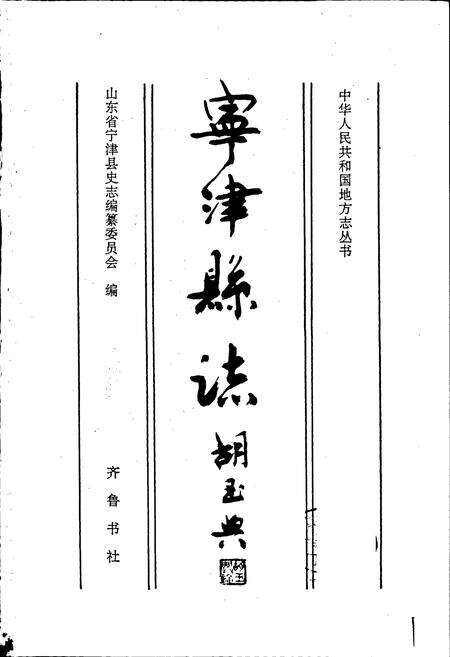 中华人民共和国地方志丛书
寧津縣誌
胡玉典
山东省宁津县史志编纂委员会 编
齐鲁书社